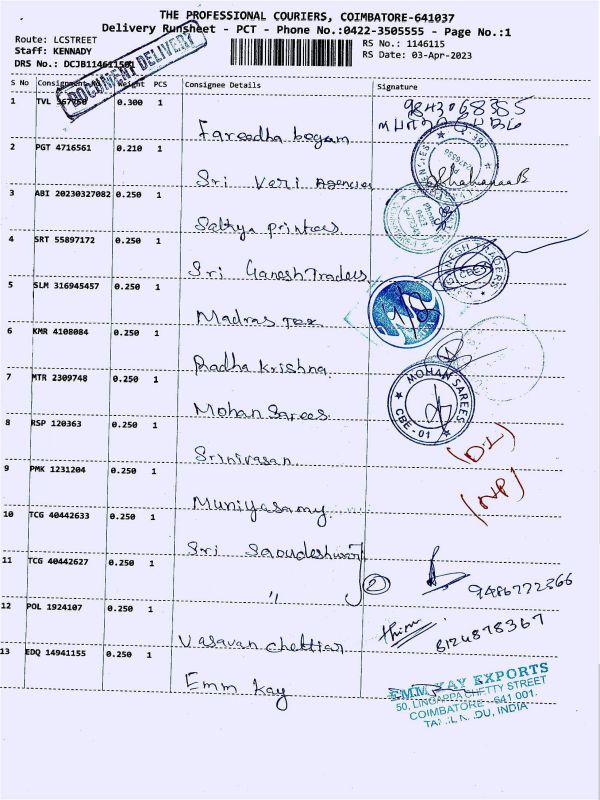 THE PROFESSIONAL COURIERS, COIMBATORE-641037
Delivery Runsheet - PCT - Phone No.:0422-3505555 - Page No.:1
Route: LCSTREET
RS No.: 1146115
Staff: KENNADY
RS Date: 03-Apr-2023
DRS No.: DCJB114611501
DOCUMENT DELIVERY
S No Consignment Weight PCS Consignee Details Signature
1 TVL 0.300 1 Fareedha begam 9843068385
2 PGT 4716561 0.210 1 Sri Veri Agencies
3 ABI 20230327082 0.250 1 Sathya printers
4 SRT 55897172 0.250 1 Sri Ganesh Traders
5 SLM 316945457 0.250 1 Madras Tex
6 KMR 4108084 0.250 1 Radha Krishna
7 MTR 2309748 0.250 1 Mohan Sarees
MOHAN SAREES
CBE-01
8 RSP 120363 0.250 1 Srinivasan (D.L)
9 PMK 1231204 0.250 1 Muniyasamy (NP)
10 TCG 40442633 0.250 1 Sri
11 TCG 40442627 0.250 1 " 2
12 POL 1924107 0.250 1 Vasavan chettiar 8124878367
13 EDQ 14941155 0.250 1 Emm Kay
EMM KAY EXPORTS
50, LINGAPPA CHETTY STREET
COIMBATORE - 641 001.
TAMIL NADU, INDIA